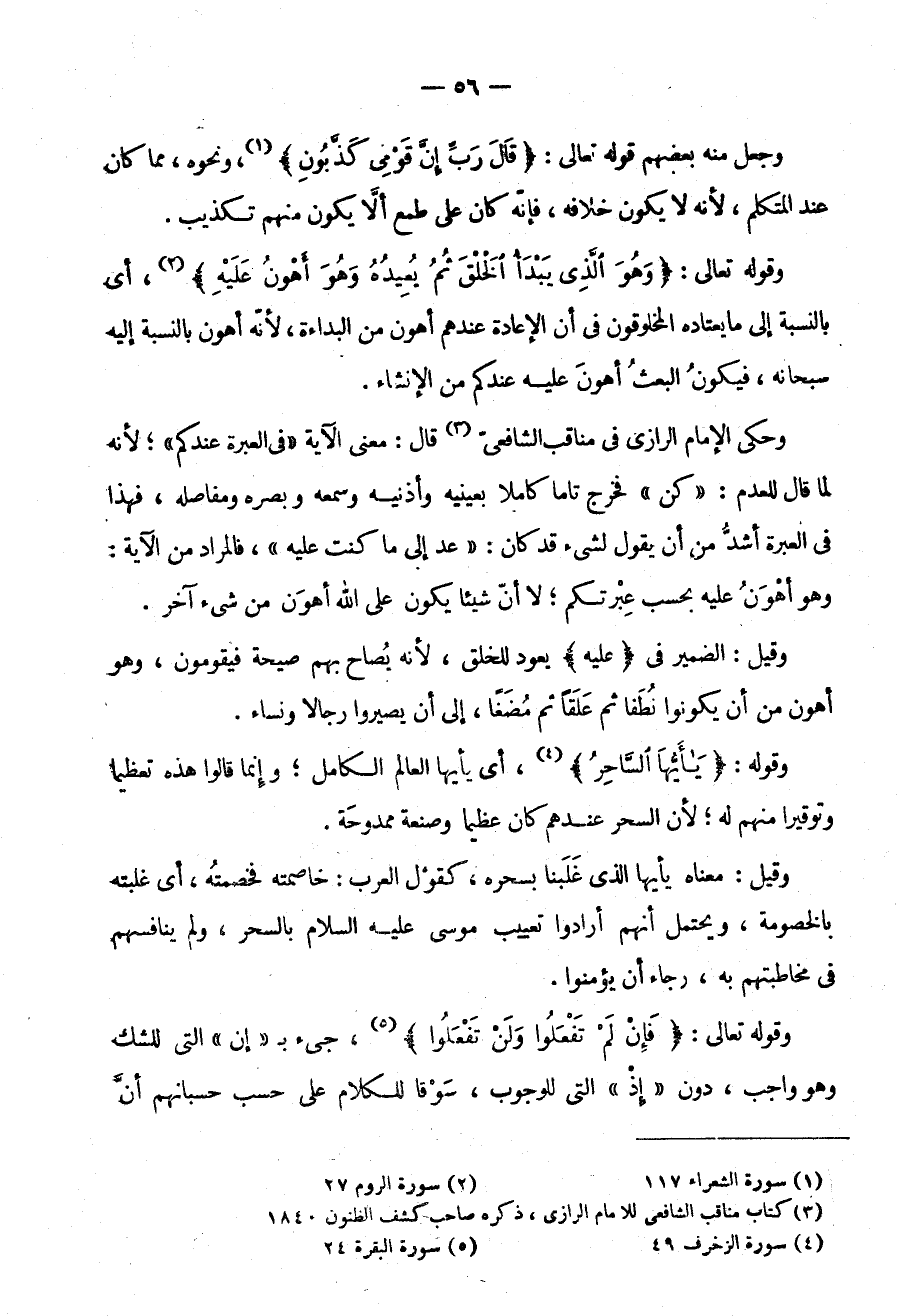 — ٥٦ —
وجعل منه بعضهم قوله تعالى : ﴿ قَالَ رَبِّ إِنَّ قَوْمِى كَذَّبُونِ ﴾ (١)، ونحوه ، مما كان
عند المتكلم ، لأنه لا يكون خلافه ، فإنّه كان على طمع ألَّا يكون منهم تكذيب .
وقوله تعالى : ﴿ وَهُوَ ٱلَّذِى يَبْدَأُ ٱلْخَلْقَ ثُمَّ يُعِيدُهُ وَهُوَ أَهْوَنُ عَلَيْهِ ﴾ (٢) ، أى
بالنسبة إلى مايعتاده المخلوقون فى أن الإعادة عندهم أهون من البداءة ، لأنّه أهون بالنسبة إليه
سبحانه ، فيكونُ البعثُ أهونَ عليه عندكم من الإنشاء .
وحكى الإمام الرازى فى مناقب الشافعىّ (٣) قال : معنى الآية «فى العبرة عندكم» ؛ لأنه
لما قال للعدم : « كن » فخرج تاما كاملا بعينيه وأذنيه وسمعه وبصره ومفاصله ، فهذا
فى العبرة أشدُّ من أن يقول لشىء قد كان : « عد إلى ما كنت عليه » ، فالمراد من الآية :
وهو أهْوَنُ عليه بحسب عِبْرتكم ؛ لا أنّ شيئا يكون على الله أهوَن من شىء آخر .
وقيل : الضمير فى ﴿ عليه ﴾ يعود للخلق ، لأنه يُصاح بهم صيحة فيقومون ، وهو
أهون من أن يكونوا نُطَفا ثم عَلَقًا ثم مُضَغًا ، إلى أن يصيروا رجالا ونساء .
وقوله : ﴿ يَـٰأَيُّهَا ٱلسَّاحِرُ ﴾ (٤) ، أى يأيها العالم الكامل ؛ وإنما قالوا هذه تعظيما
وتوقيرا منهم له ؛ لأن السحر عندهم كان عظيما وصنعة ممدوحَة .
وقيل : معناه يأيها الذى غَلَبنا بسحره ، كقوْل العرب : خاصمته فخصمتُه ، أى غلبته
بالخصومة ، ويحتمل أنهم أرادوا تعييب موسى عليه السلام بالسحر ، ولم ينافسهم
فى مخاطبتهم به ، رجاء أن يؤمنوا .
وقوله تعالى : ﴿ فَإِنْ لَمْ تَفْعَلُوا وَلَنْ تَفْعَلُوا ﴾ (٥) ، جىء بـ « إن » التى للشك
وهو واجب ، دون « إذْ » التى للوجوب ، سَوْقا للكلام على حسب حسبانهم أنَّ
(١) سورة الشعراء ١١٧ (٢) سورة الروم ٢٧
(٣) كتاب مناقب الشافعى للامام الرازى ، ذكره صاحب كشف الظنون ١٨٤٠
(٤) سورة الزخرف ٤٩ (٥) سورة البقرة ٢٤